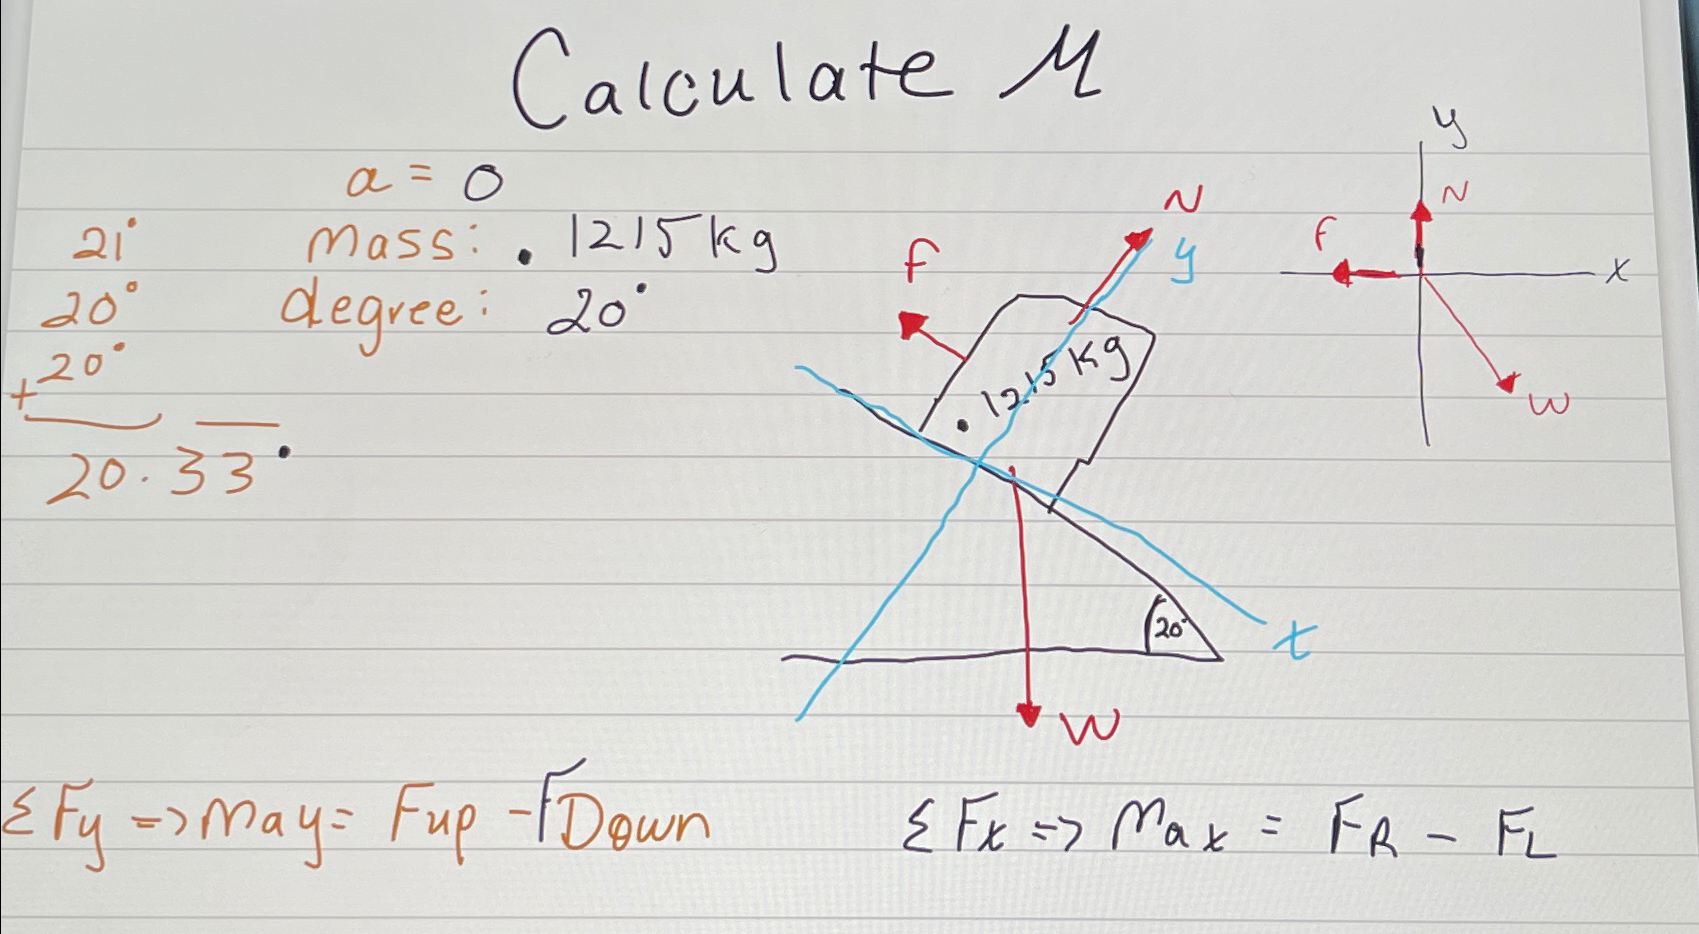 Calculate μ
a = 0
21°
mass: .1215kg
20°
degree: 20°
+20°
20.33°
f
N
y
.1215kg
20°
t
W
y
N
f
x
W
ΣFy => may = Fup - FDown
ΣFx => Max = FR - FL